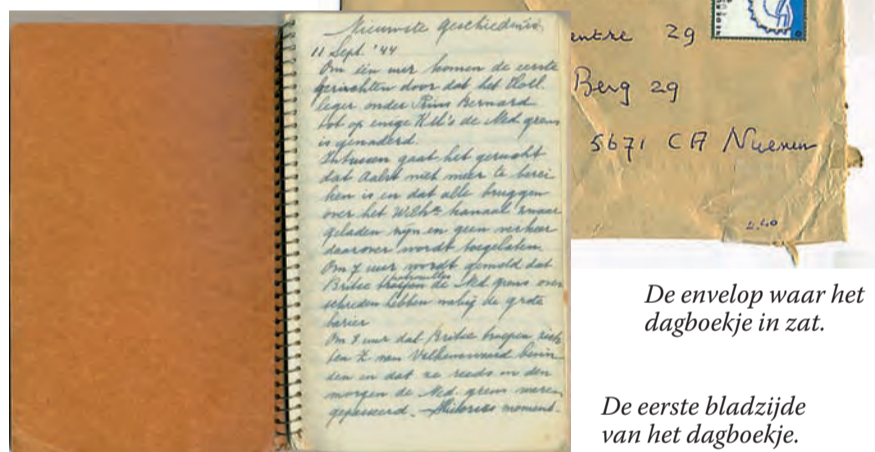 Nieuwste Geschiedenis
11 Sept. '44
Om één uur komen de eerste
geruchten door dat het Holl.
leger onder Prins Bernard
tot op enige K.M.'s de Ned. grens
is genaderd.
Intussen gaat het gerucht
dat Aalst niet meer te berei-
ken is en dat alle bruggen
over het Wilh. kanaal zwaar
geladen zijn en geen verkeer
daarover wordt toegelaten.
Om 7 uur wordt gemeld dat
patrouilles
Britse troepen de Ned. grens over
schreden hebben nabij de grote
barier
Om 8 uur dat Britse troepen zich
ten Z. van Valkenswaard bevin
den en dat ze reeds in den
morgen de Ned. grens waren
gepasseerd. Historisch moment.
entre 29
Berg 29
5671 CA Nuenen
2,40
De envelop waar het
dagboekje in zat.
De eerste bladzijde
van het dagboekje.